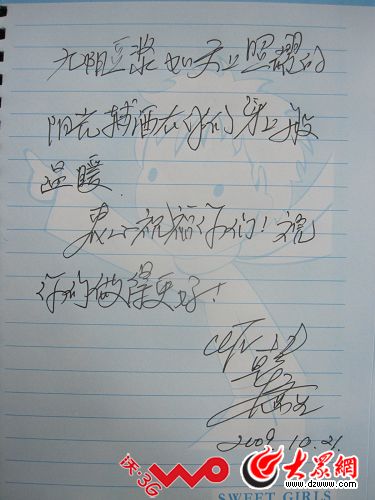 九阳豆浆如天上照耀的
阳光轻洒在你们身上般
温暖.
衷心祝福你们！祝
你们做得更好！
2009.10.21.
沃·3G
WO
大众网
www.dzwww.com
SWEET GIRLS